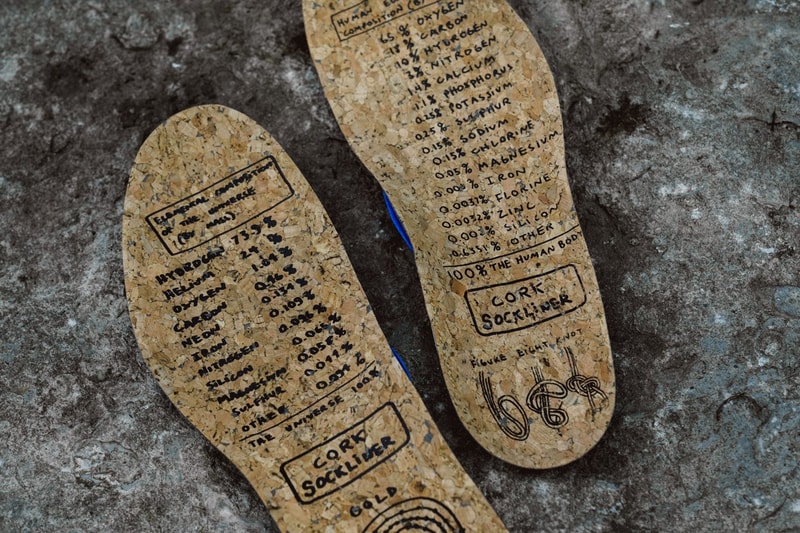 ELEMENTAL COMPOSITION
OF THE UNIVERSE
(BY MASS)
HYDROGEN 73.9%
HELIUM
OXYGEN 1.04%
CARBON 0.46%
NEON 0.134%
IRON 0.109%
NITROGEN 0.096%
SILICON
MAGNESIUM
SULPHUR
OTHER
THE UNIVERSE 100%
CORK
SOCKLINER
GOLD
HUMAN
COMPOSITION
65% OXYGEN
18% CARBON
10% HYDROGEN
3% NITROGEN
CALCIUM
PHOSPHORUS
0.25% POTASSIUM
0.25% SULPHUR
0.15% SODIUM
0.15% CHLORINE
0.05% MAGNESIUM
IRON
0.0037% FLUORINE
0.0032% ZINC
0.002% SILICON
0.6351% OTHER
100% THE HUMAN BODY
CORK
SOCKLINER
FIGURE EIGHT KNOT